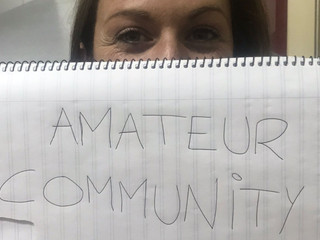 AMATEUR
COMMUNiTY